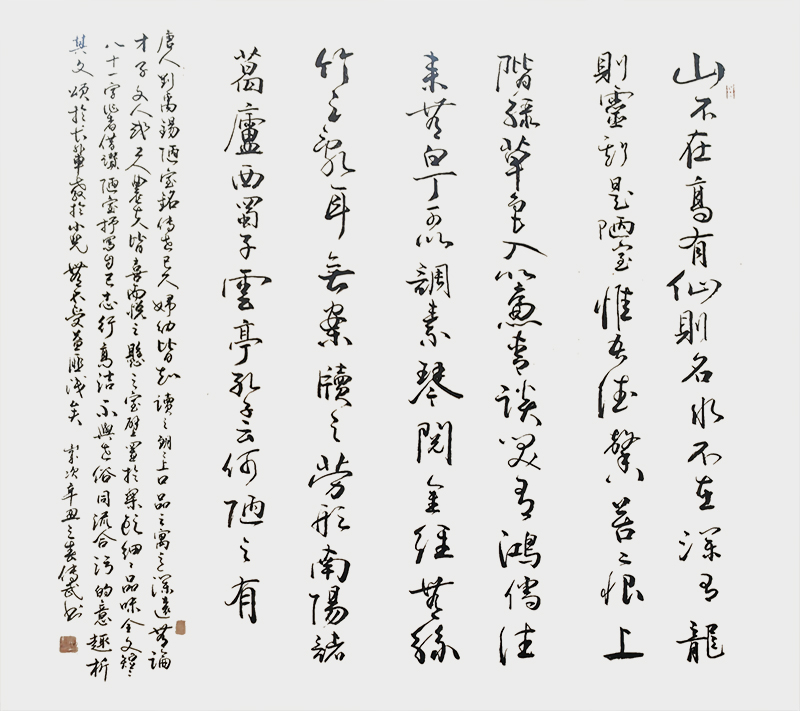 山不在高有仙則名水不在深有龍
則靈斯是陋室惟吾德馨苔痕上
階綠草色入簾青談笑有鴻儒往
來無白丁可以調素琴閱金經無絲
竹之亂耳無案牘之勞形南陽諸
葛廬西蜀子雲亭孔子云何陋之有
唐人劉禹錫陋室銘傳世已久婦幼皆知讀之朗朗上口品之寓意深遠無論
才子文人或工人農夫皆喜而悅之懸之室壁置於案頭細細品味全文短短
八十一字作者借讚陋室抒寫自己志行高潔不與世俗同流合污的意趣析
其文頌於長輩教於小兒無不受益匪淺矣 歲次辛丑之春傳武書